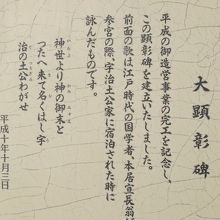 大顕彰碑
平成の御造営事業の完工を記念し
この顕彰碑を建立いたしました。
前面の歌は江戸時代の国学者、本居宣長翁
参宮の際、宇治土公家に宿泊された時に
詠んだものです。
神世より神の御末と
つたへ来て名くはし宇
治の土公わがせ
平成十年十月三日